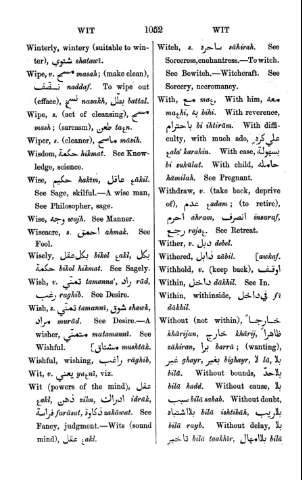 WIT 1052 WIT
Winterly, wintery (suitable to win-
ter), شتوي shatawī.
Wipe, v. مسح masaḥ; (make clean),
تنضف naddaf. To wipe out
(efface), نسخ nasakh, بطّل battal.
Wipe, s. (act of cleansing), مسح
mash; (sarcasm), طعن
Wiper, s. (cleanser), ماسح masih.
Wisdom, حكمة hikmat. See Know-
ledge, science.
Wise, حكيم hakīm, عاقل
See Sage, skilful.—A wise man,
See Philosopher, sage.
Wise, وجه wajh. See Manner.
Wiseacre, s. احمق ahmak. See
Fool.
Wisely, بكل عقل
حكمة bikol hikmat. See Sagely.
Wish, v. تمنى tamanna', راد rād,
رغب raghib. See Desire.
Wish, s. تمني tamanni, شوق shawk,
مراد murād. See Desire.—A
wisher, متمني matamanni. See
Wishful. [مشتاق mushtāk]
Wishful, wishing, راغب rāghib,
Wit, v. يعني viz.
Wit (powers of the mind), عقل
ذهن zihn, ادراك idrāk,
فراسة farāsat, ذكاوة zakāwat. See
Fancy, judgment.—Wits (sound
mind), عقل
Witch, s. ساحرة sāhirah. See
Sorceress, enchantress.—To witch.
See Bewitch.—Witchcraft. See
Sorcery, necromancy.
With, مع With him, معه
به bihi. With reverence,
باحترام bi ihtirām. With diffi-
culty, with much ado,
With ease, بسهولة
bi suhūlat. With child, حامله
hāmilah. See Pregnant.
Withdraw, v. (take back, deprive
of), عدم (to retire),
احرم ahram, انصرف insaraf,
رجع See Retreat.
Wither, v. دبل debel.
Withered, دابل dābil. [awkaf.
Withhold, v. (keep back), اوقف
Within, داخل dākhil. See In.
Within, withinside, في داخل fī
dākhil.
Without (not within), خارجاً
khārijan, خارج khārij,
zāhiran, برا barrā; (wanting),
غير ghayr, بغير bighayr, لا lā, بلا
bilā. Without bounds, بلا حد
bilā hadd. Without cause, بلا
سبب bilā sabab. Without doubt,
بلا اشتباه bilā ishtibāh, بلا ريب
bilā rayb. Without delay, بلا
تاخير bilā taakhār, بلا امهال